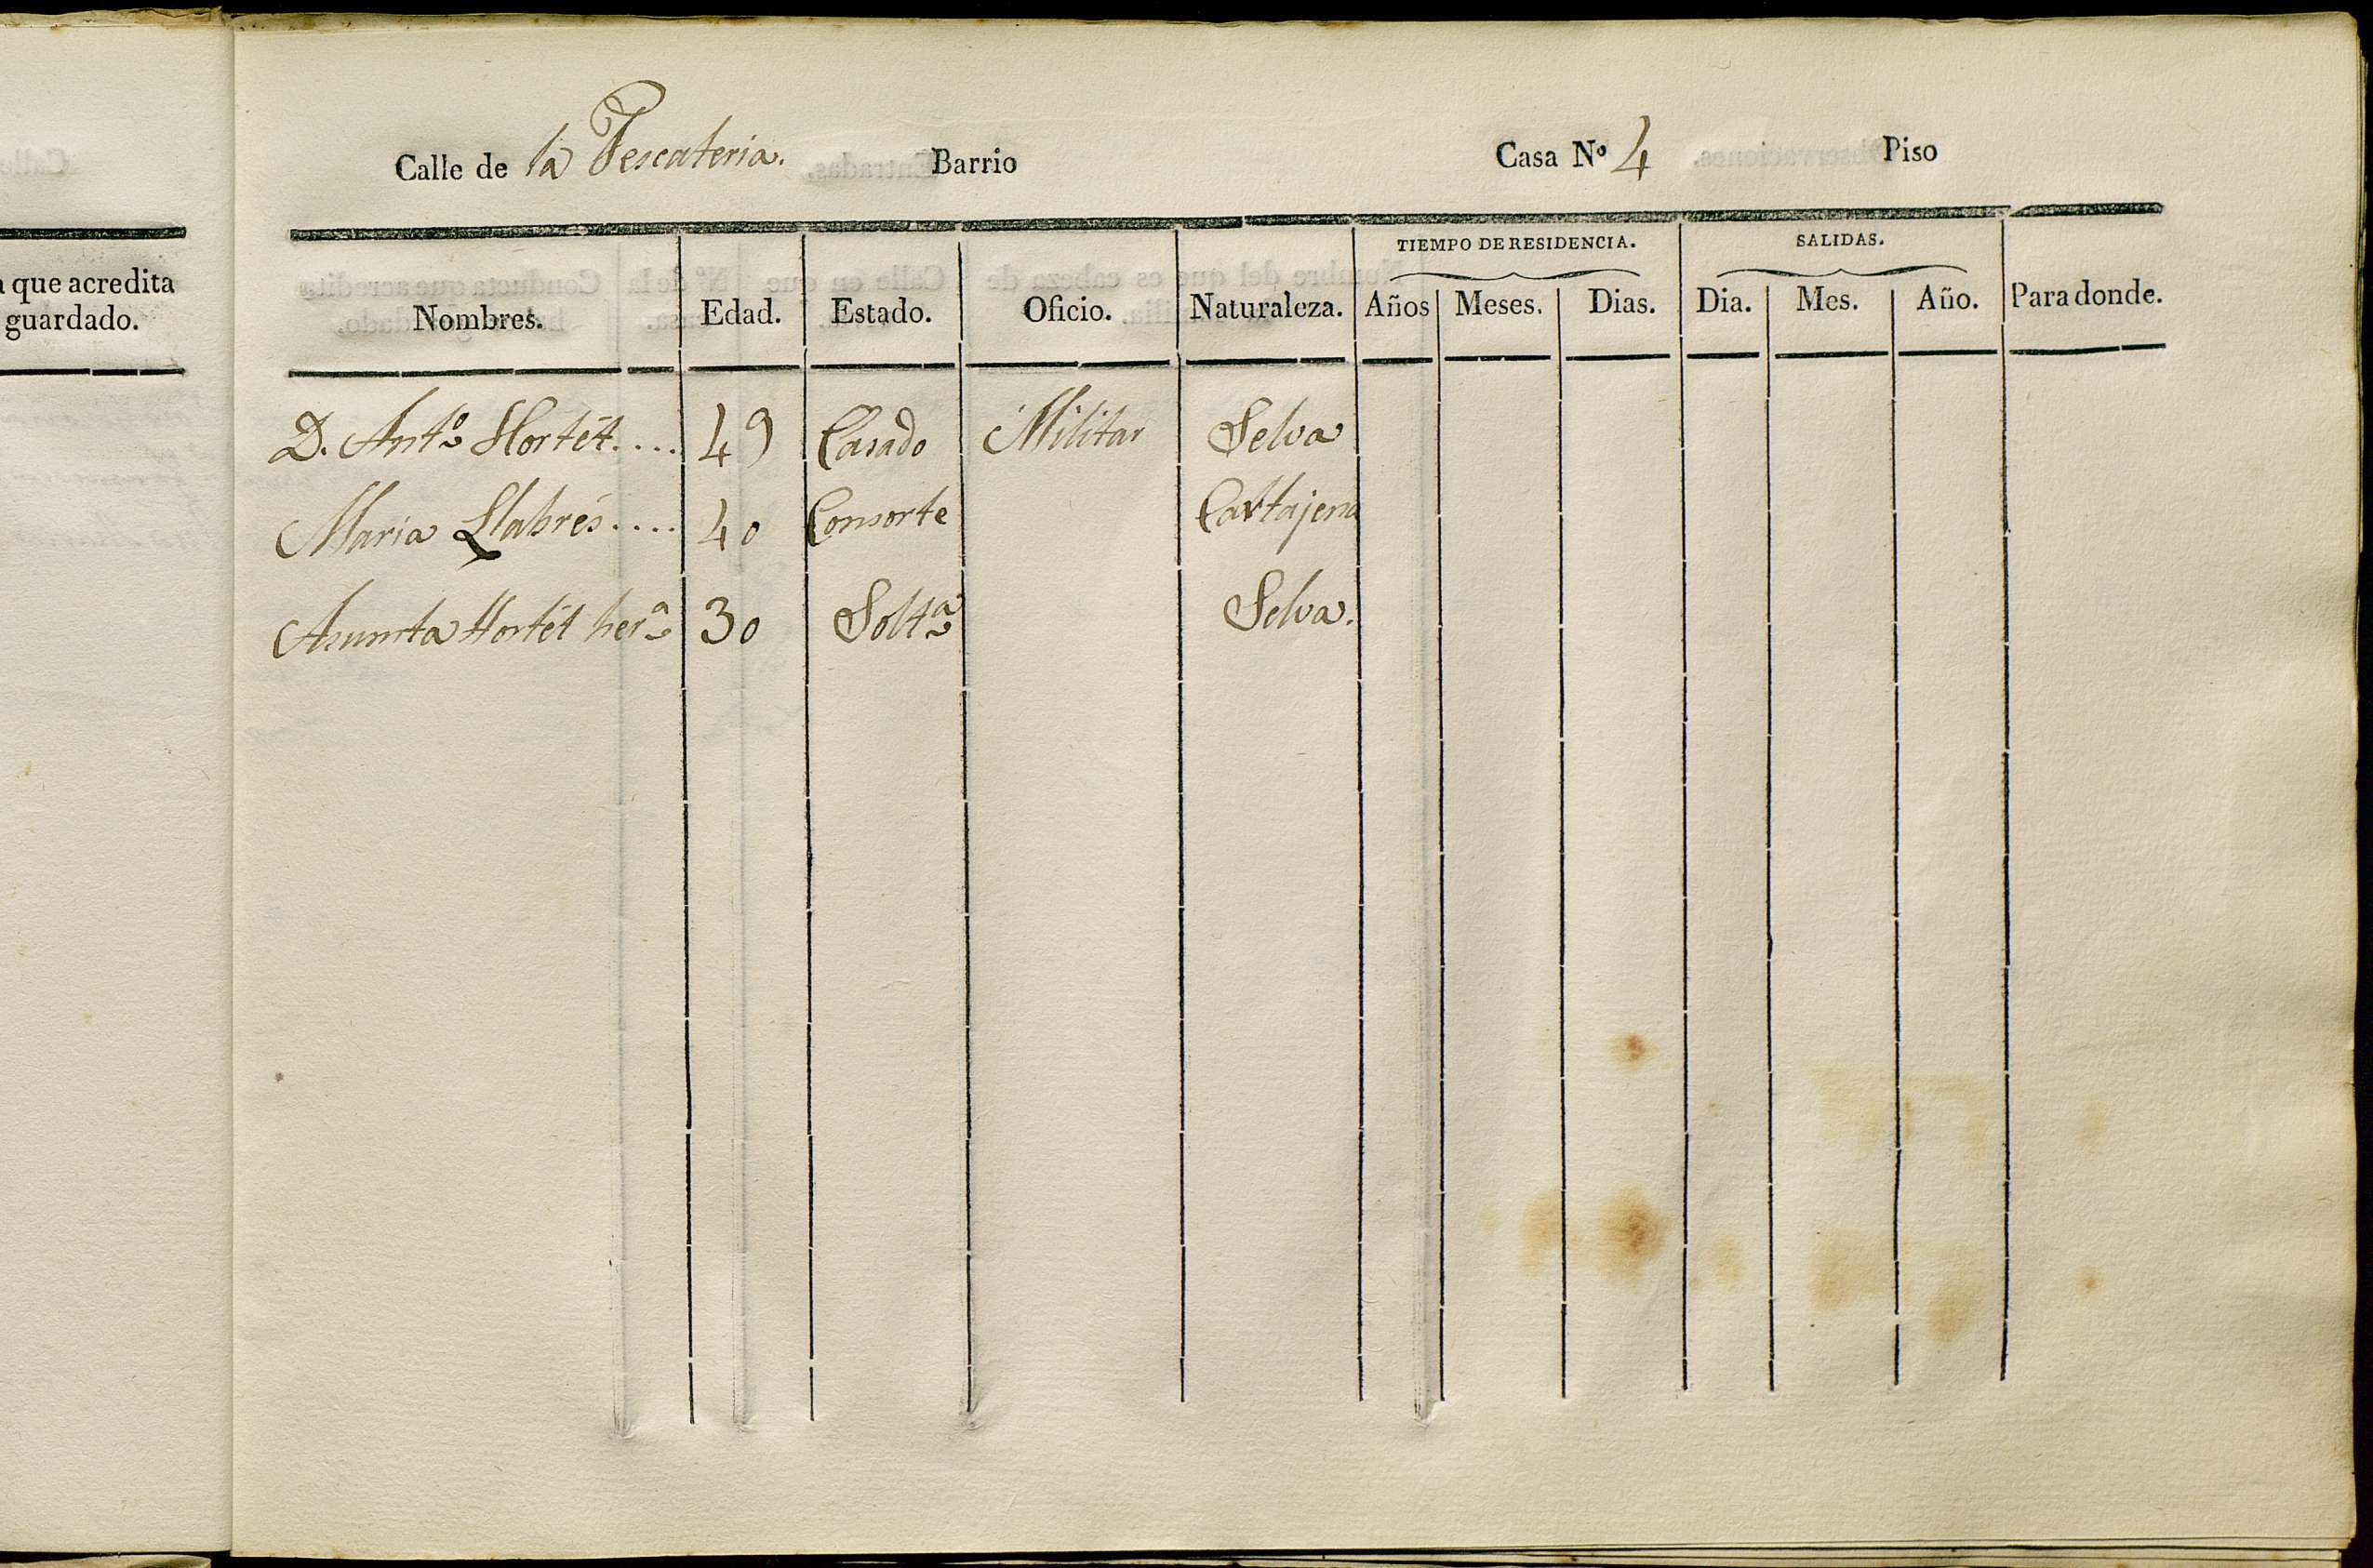 Calle de la Pescateria. Barrio Casa Nº 4 Piso
que acredita
guardado.
TIEMPO DE RESIDENCIA. SALIDAS.
Nombres. Edad. Estado. Oficio. Naturaleza. Años Meses. Dias. Dia. Mes. Año. Para donde.
D. Antº Hortét.... 49 Casado Militar Selva
Maria Llabrés.... 40 Consorte Cartajena
Asumta Hortét herª 30 Soltª Selva.